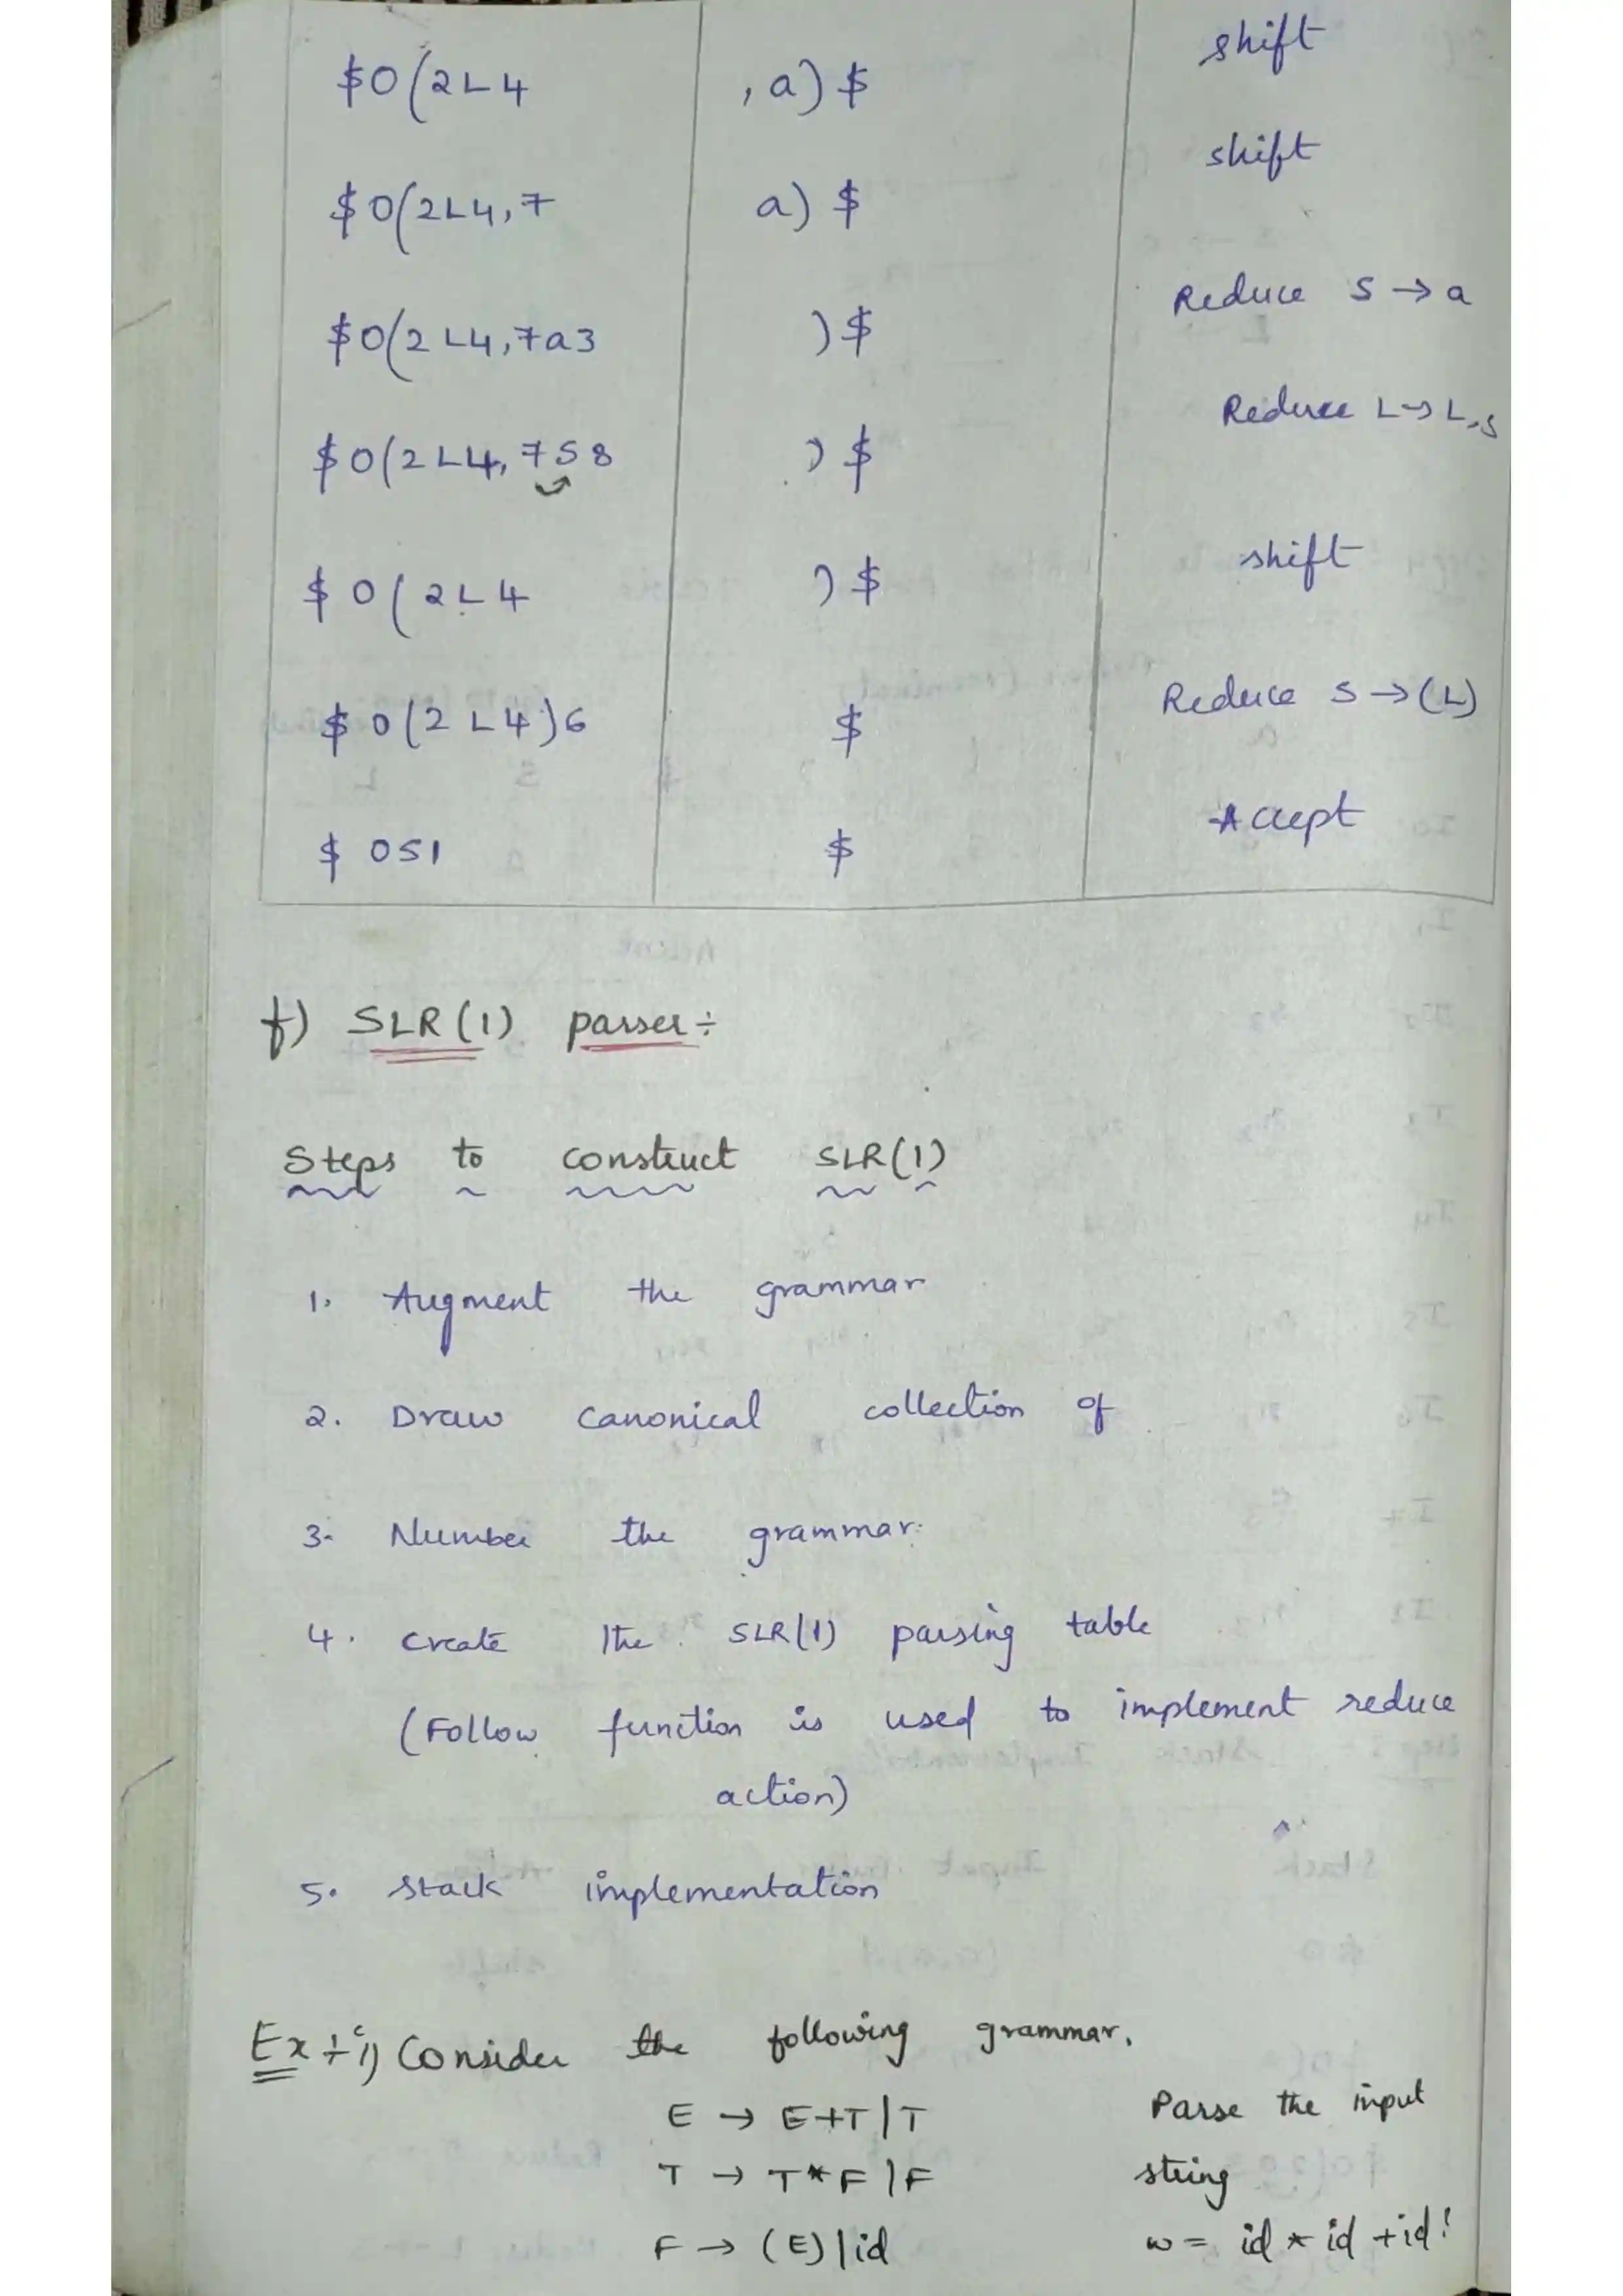 $0(2L4 , a) $ shift
$0(2L4,7 a) $ shift
$0(2L4,7a3 )$ Reduce S → a
$0(2L4,7S8 )$ Reduce L→L,S
$0(2L4 )$ shift
$0(2L4)6 $ Reduce S→(L)
$ 0S1 $ Accept
f) SLR(1) parser ÷
Steps to construct SLR(1)
1. Augment the grammar
2. Draw canonical collection of
3. Number the grammar.
4. create the SLR(1) parsing table
(Follow function is used to implement reduce
action)
5. stack implementation
Ex ÷ i) Consider the following grammar.
E → E+T | T Parse the input
T → T*F | F string
F → (E) | id w = id * id + id!